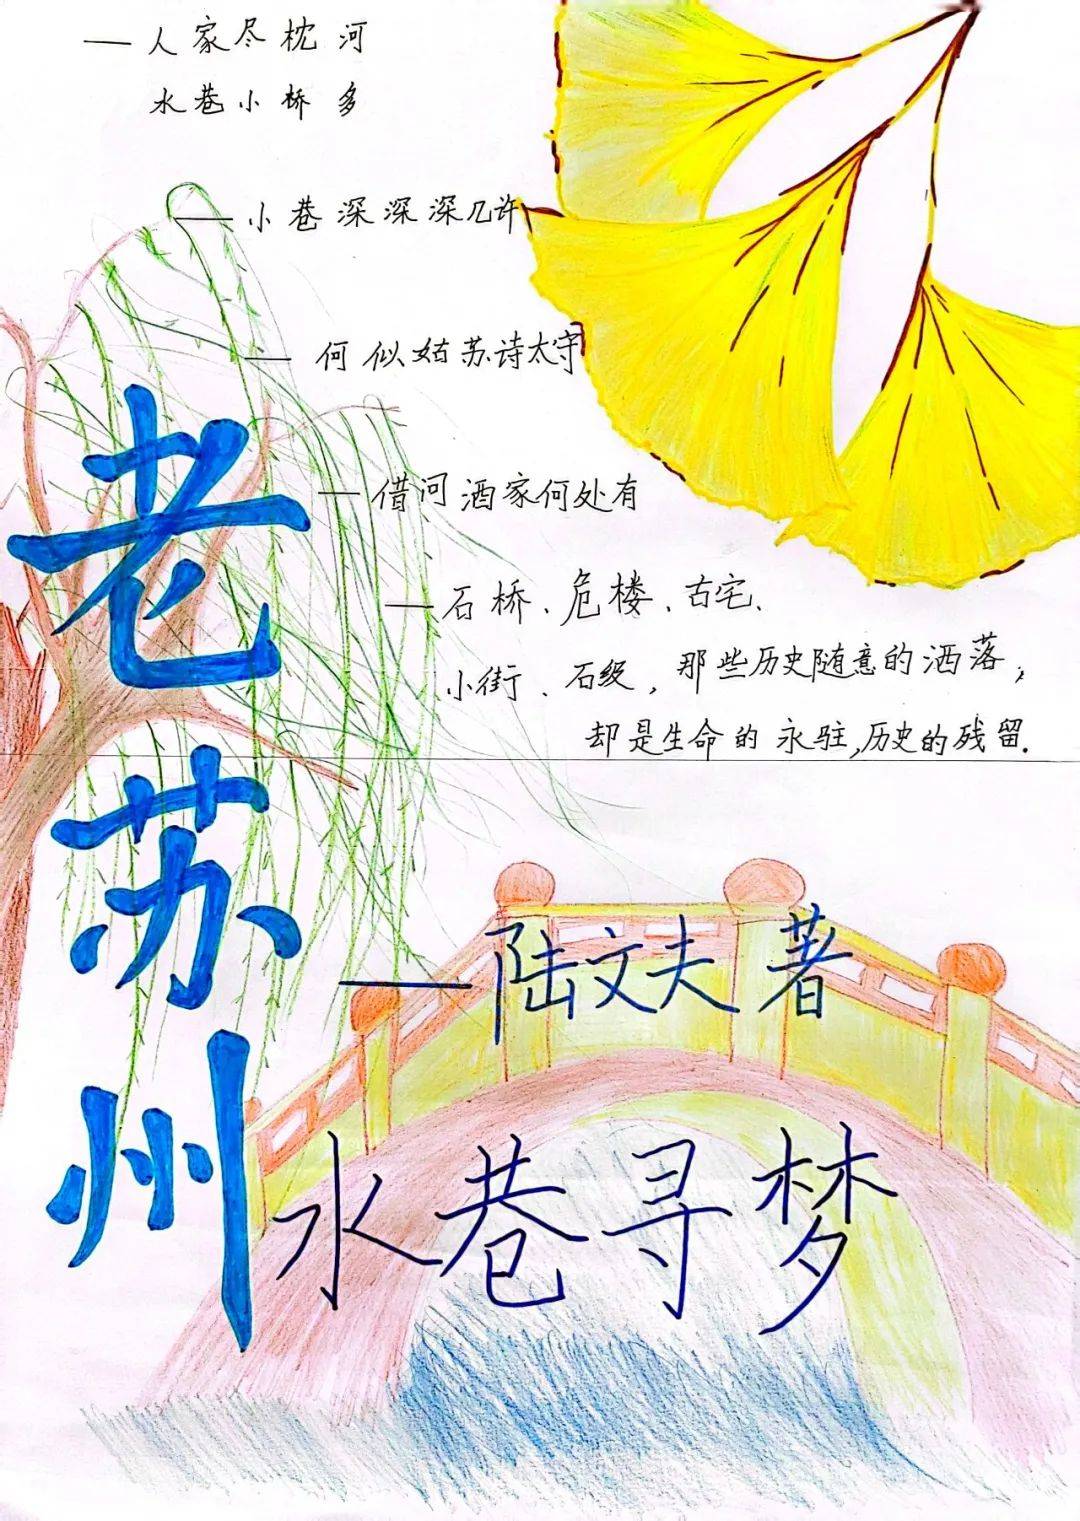 —人家尽枕河
水巷小桥多
—小巷深深深几许
—何似姑苏诗太守
—借问酒家何处有
—石桥、危楼、古宅、
小街、石级，那些历史随意的洒落，
却是生命的永驻，历史的残留.
老苏州
—陆文夫 著
水巷寻梦